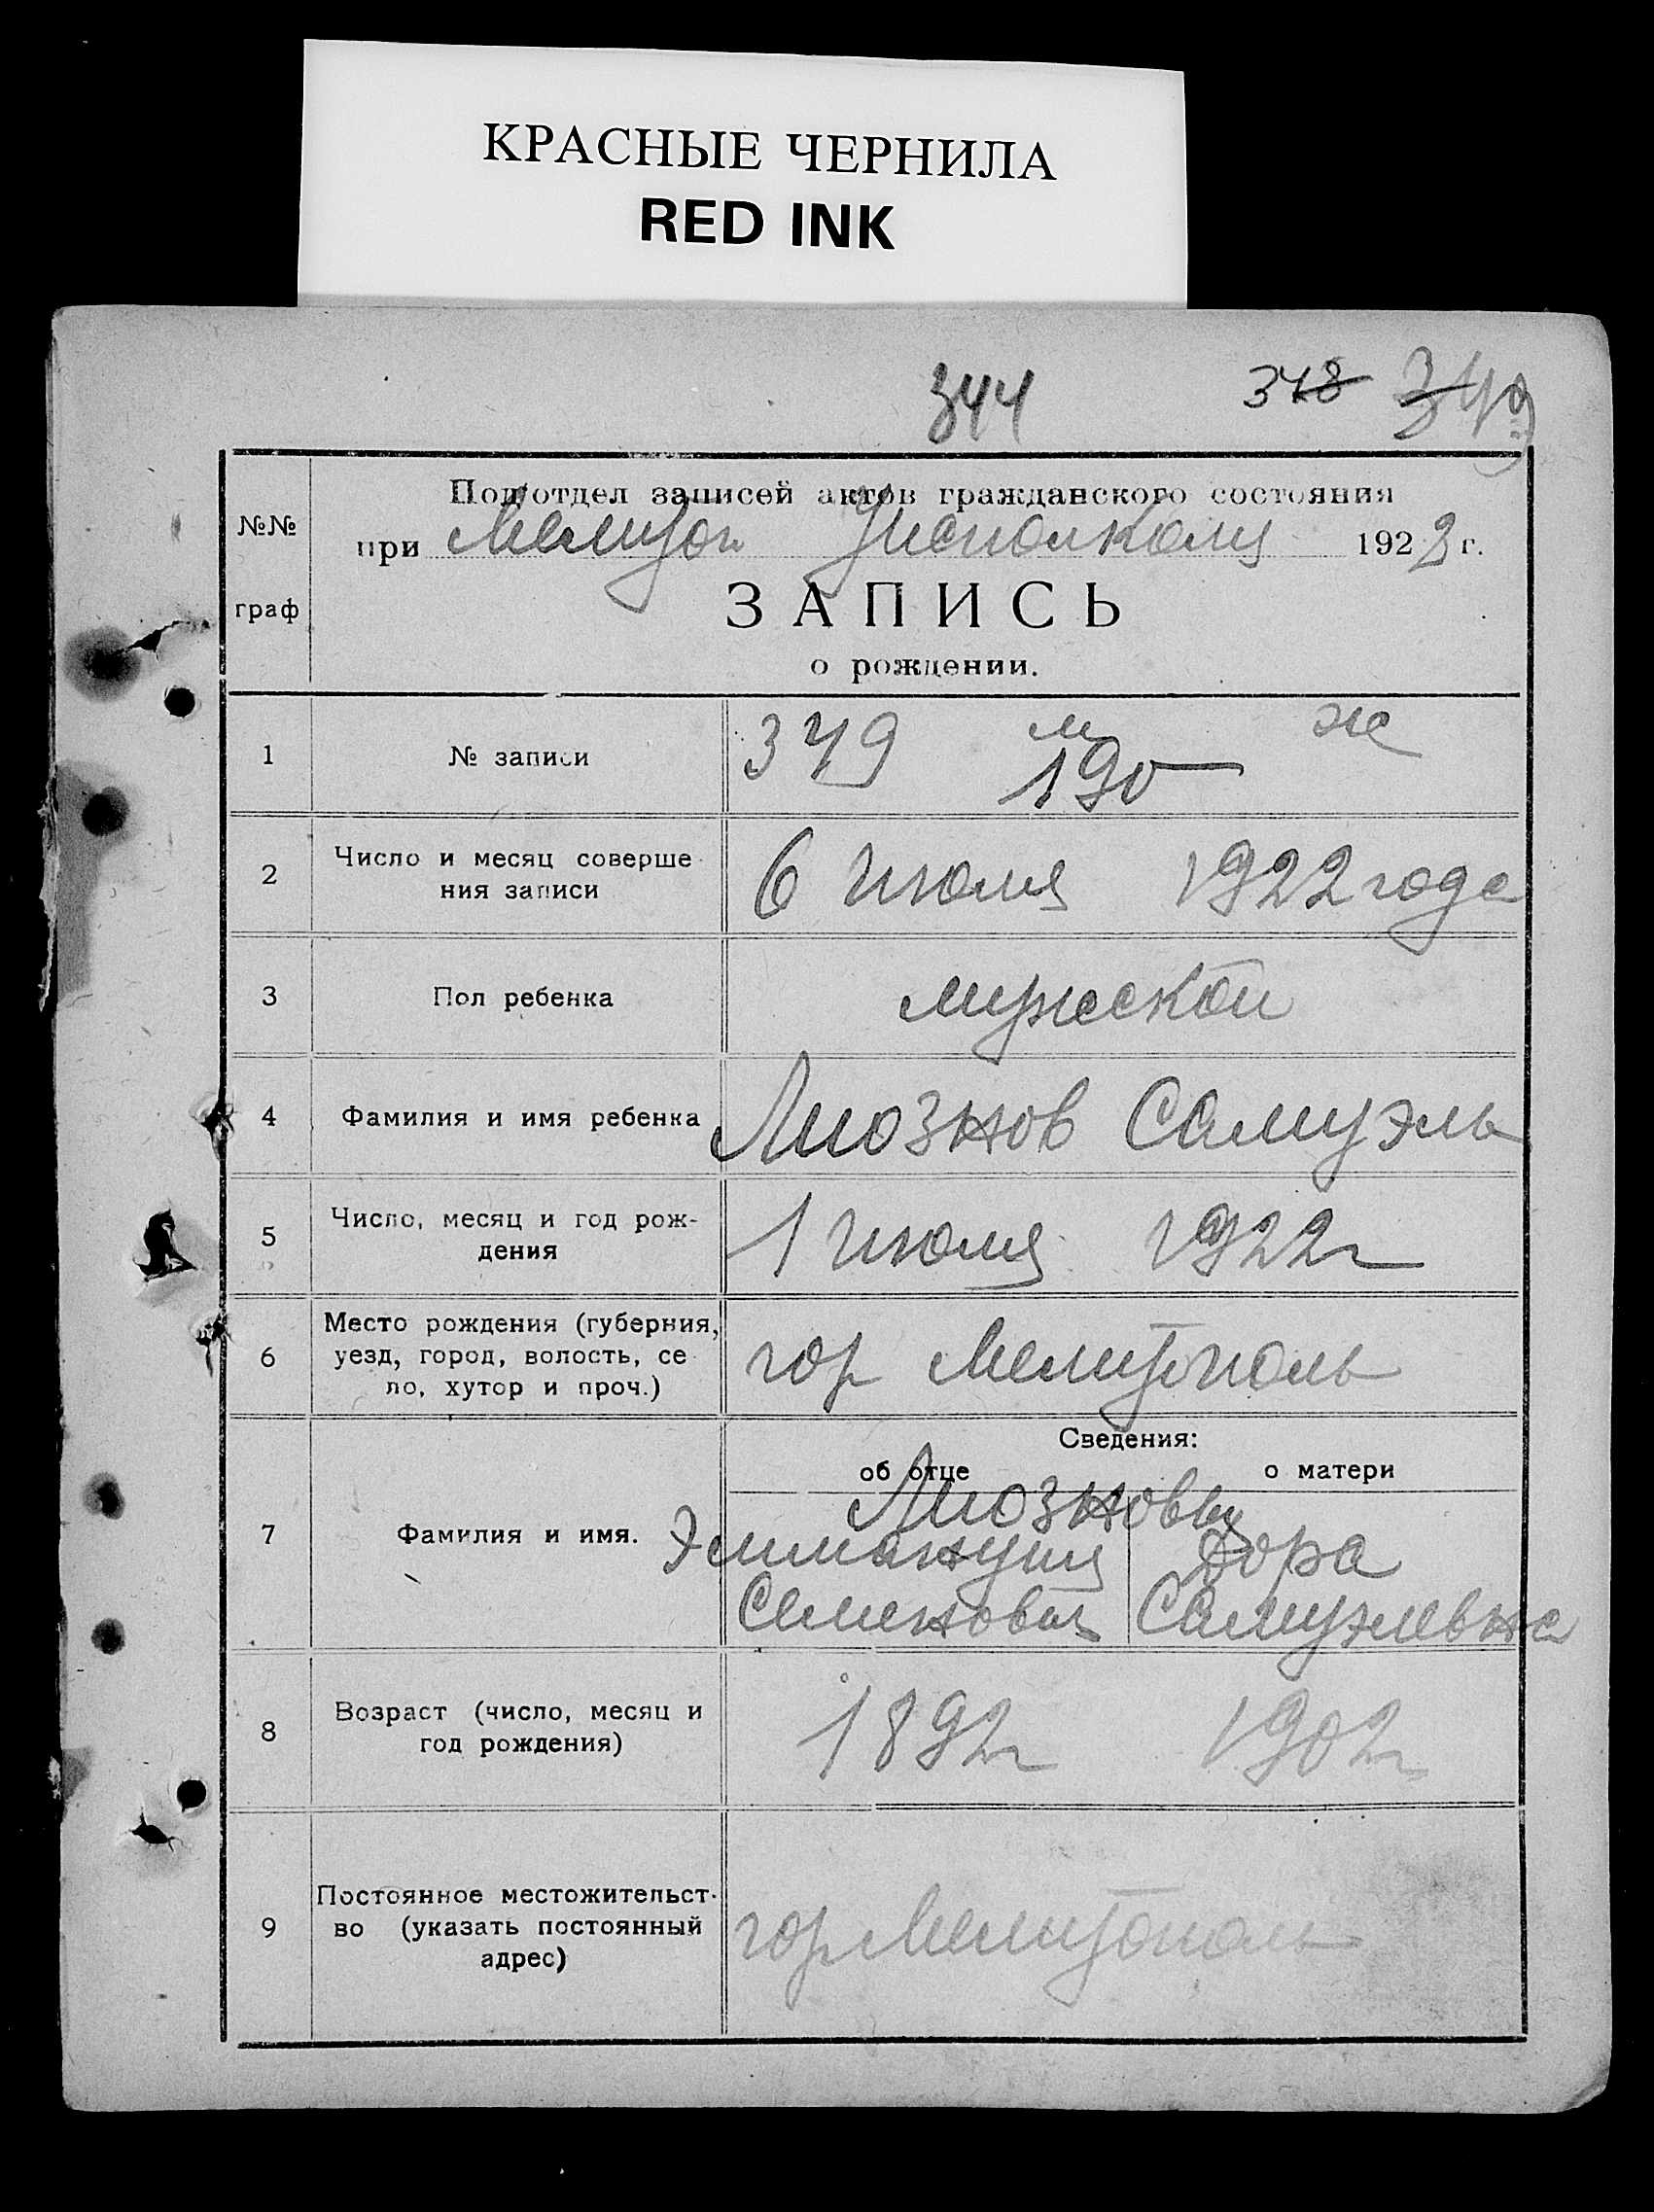 КРАСНЫЕ ЧЕРНИЛА
RED INK
344 348 349
№№ граф
Подотдел записей актов гражданского состояния
при Мелитоп Уисполкому 1922 г.
ЗАПИСЬ
о рождении.
1 № записи 349 м 190 ж
2 Число и месяц соверше
ния записи
6 Июля 1922 года
3 Пол ребенка мужской
4 Фамилия и имя ребенка Лиознов Самуэль
5 Число, месяц и год рож-
дения
1 Июля 1922 г
6 Место рождения (губерния,
уезд, город, волость, се
ло, хутор и проч.)
гор Мелитополь
Сведения:
об отце о матери
7 Фамилия и имя. Лиозновы
Эммануил Дора
Семенович Самуэлевна
8 Возраст (число, месяц и
год рождения)
1892 г 1902 г
9 Постоянное местожительст-
во (указать постоянный
адрес)
гор Мелитополь